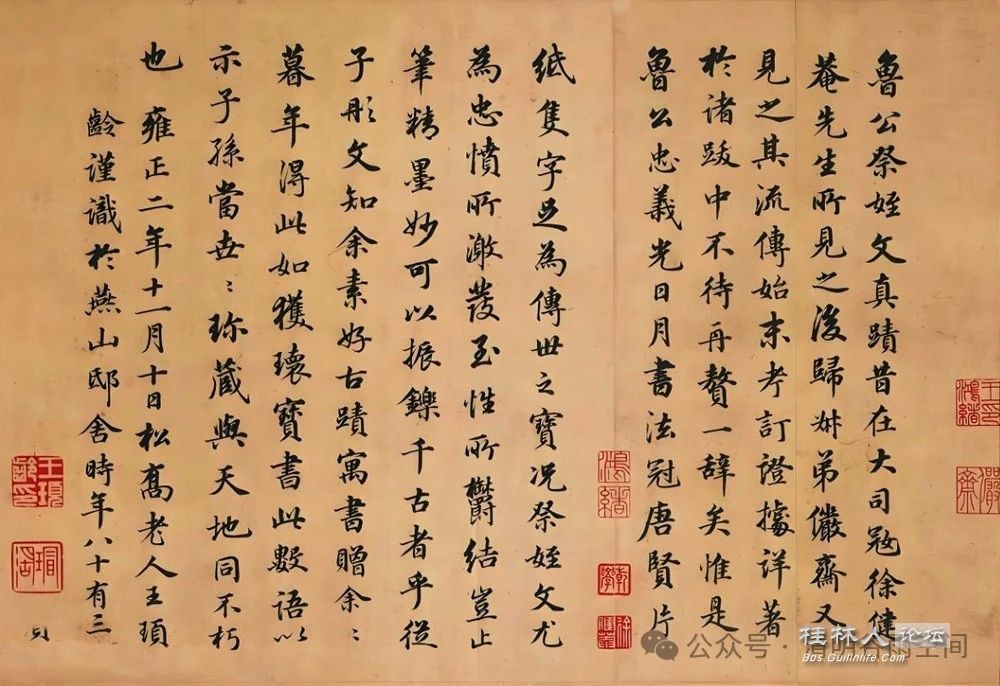 魯公祭姪文真蹟昔在大司寇徐健
菴先生所見之後歸叔弟儼齋又
見之其流傳始末考訂證據詳著
於諸跋中不待再贅一辭矣惟是
魯公忠義光日月書法冠唐賢片
紙隻字足為傳世之寶况祭姪文尤
為忠憤所激發至性所鬱結豈止
筆精墨妙可以振鑠千古者乎從
子彤文知余素好古蹟寓書贈余〻
暮年得此如獲瓌寶書此數語以
示子孫當世〻珍藏與天地同不朽
也雍正二年十一月十日松喬老人王頊
齡謹識於燕山邸舍時年八十有三
王頊齡印
鴻緒
公众号 · 清明谷雨空间
桂林人论坛
Bbs.Guilinlife.Com